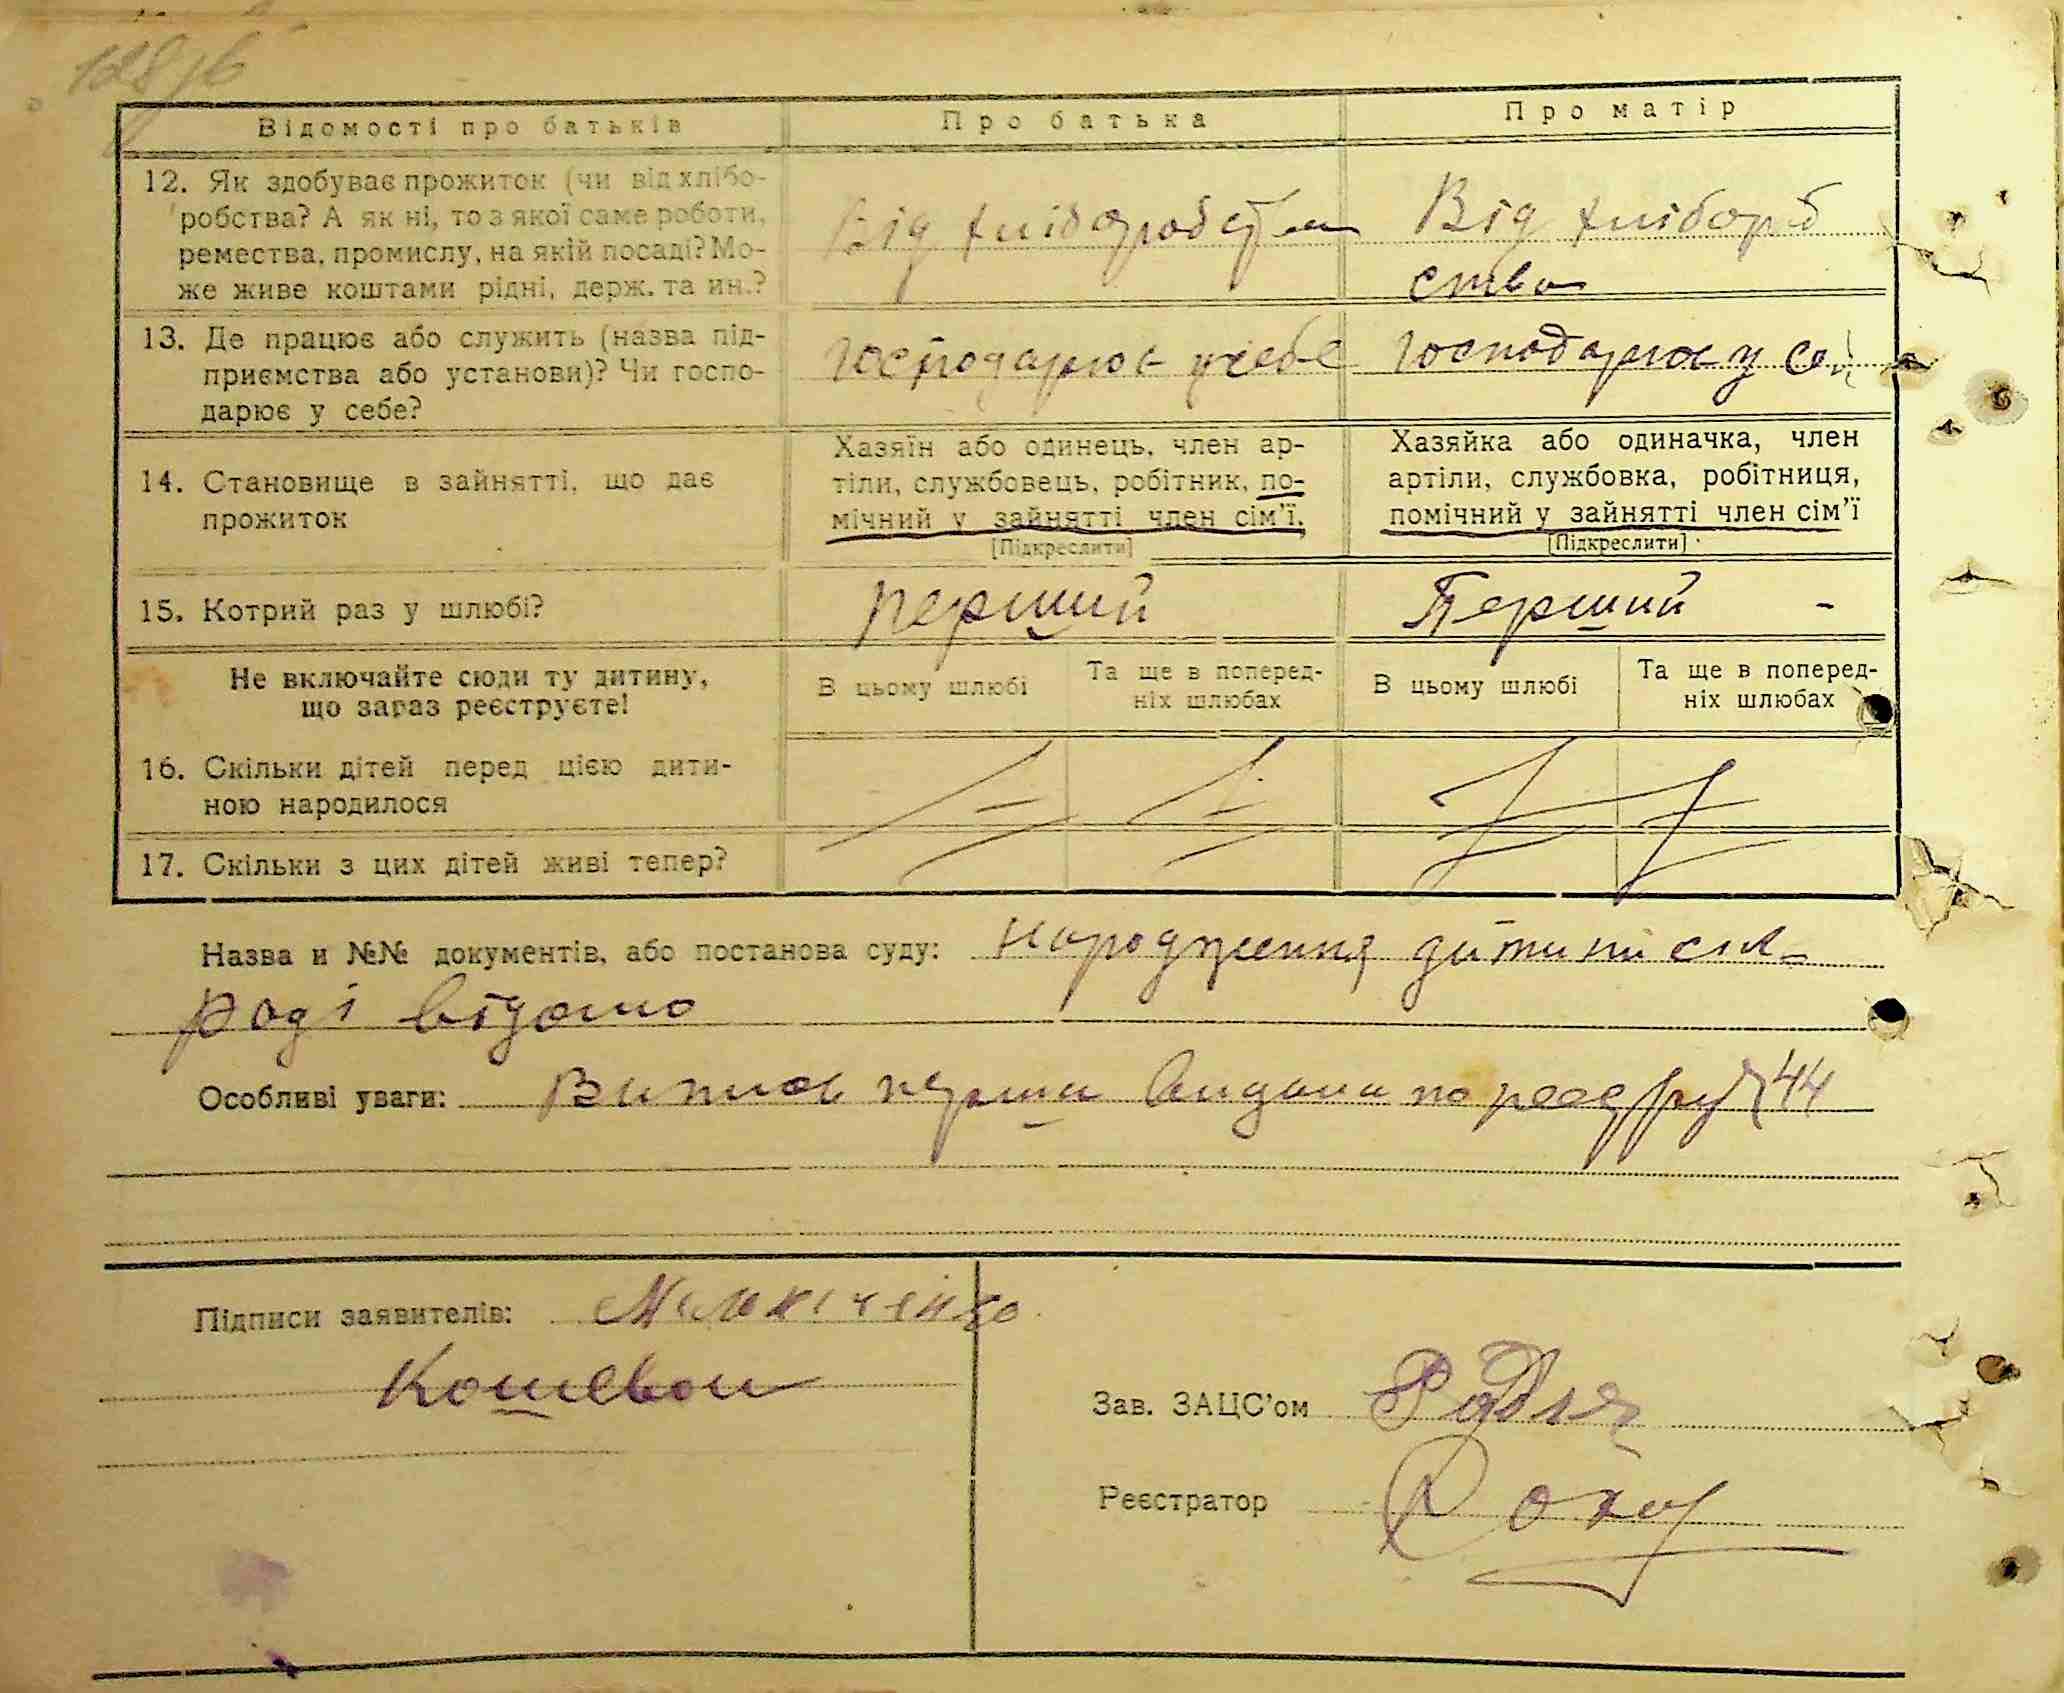 Відомості про батьків
Про батька
Про матір
12. Як здобуває прожиток (чи від хлібо-
робства? А як ні, то з якої саме роботи,
ремества, промислу, на якій посаді? Мо-
же живе коштами рідні, держ. та ин.?
Від хліборобства
Від хлібороб
ства
13. Де працює або служить (назва під-
приємства або установи)? Чи госпо-
дарює у себе?
господарює у себе
господарює у се
14. Становище в зайнятті, що дає
прожиток
Хазяїн або одинець, член ар-
тіли, службовець, робітник, по-
мічний у зайнятті член сім'ї.
[Підкреслити]
Хазяйка або одиначка, член
артіли, службовка, робітниця,
помічний у зайнятті член сім'ї
[Підкреслити]
15. Котрий раз у шлюбі?
перший
Перший -
Не включайте сюди ту дитину,
що зараз реєструєте!
В цьому шлюбі
Та ще в поперед-
ніх шлюбах
В цьому шлюбі
Та ще в поперед-
ніх шлюбах
16. Скільки дітей перед цією дити-
ною народилося
17. Скільки з цих дітей живі тепер?
Назва и №№ документів, або постанова суду: народження дитини сіл-
раді відомо
Особливі уваги: Випись перша видана по реєстру 44
Підписи заявителів:
Кошевой
Зав. ЗАЦС'ом
Реєстратор